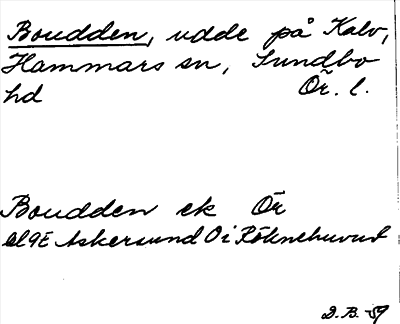 Boudden, udde på Kalv,
Hammars sn, Sundbo
hd Ör. l.
Boudden ek Ör
bl 9E Askersund O i Röknehuvud
D.B. -59